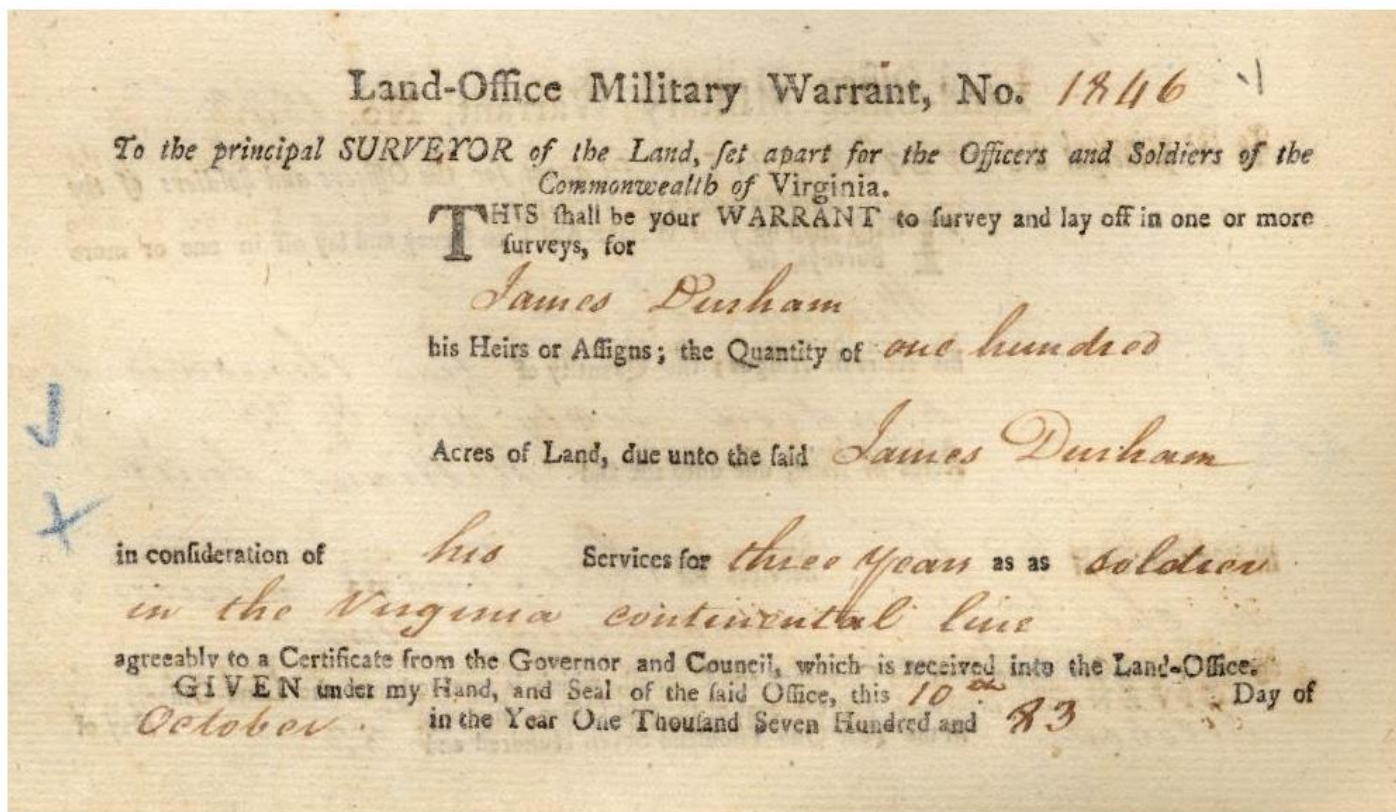 Land-Office Military Warrant, No. 1846
To the principal SURVEYOR of the Land, ſet apart for the Officers and Soldiers of the
Commonwealth of Virginia.
THIS ſhall be your WARRANT to ſurvey and lay off in one or more
ſurveys, for
James Durham
his Heirs or Aſſigns; the Quantity of one hundred
Acres of Land, due unto the ſaid James Durham
in conſideration of his Services for three years as as soldier
in the Virginia continental line
agreeably to a Certificate from the Governor and Council, which is received into the Land-Office.
GIVEN under my Hand, and Seal of the ſaid Office, this 10th Day of
October. in the Year One Thouſand Seven Hundred and 83